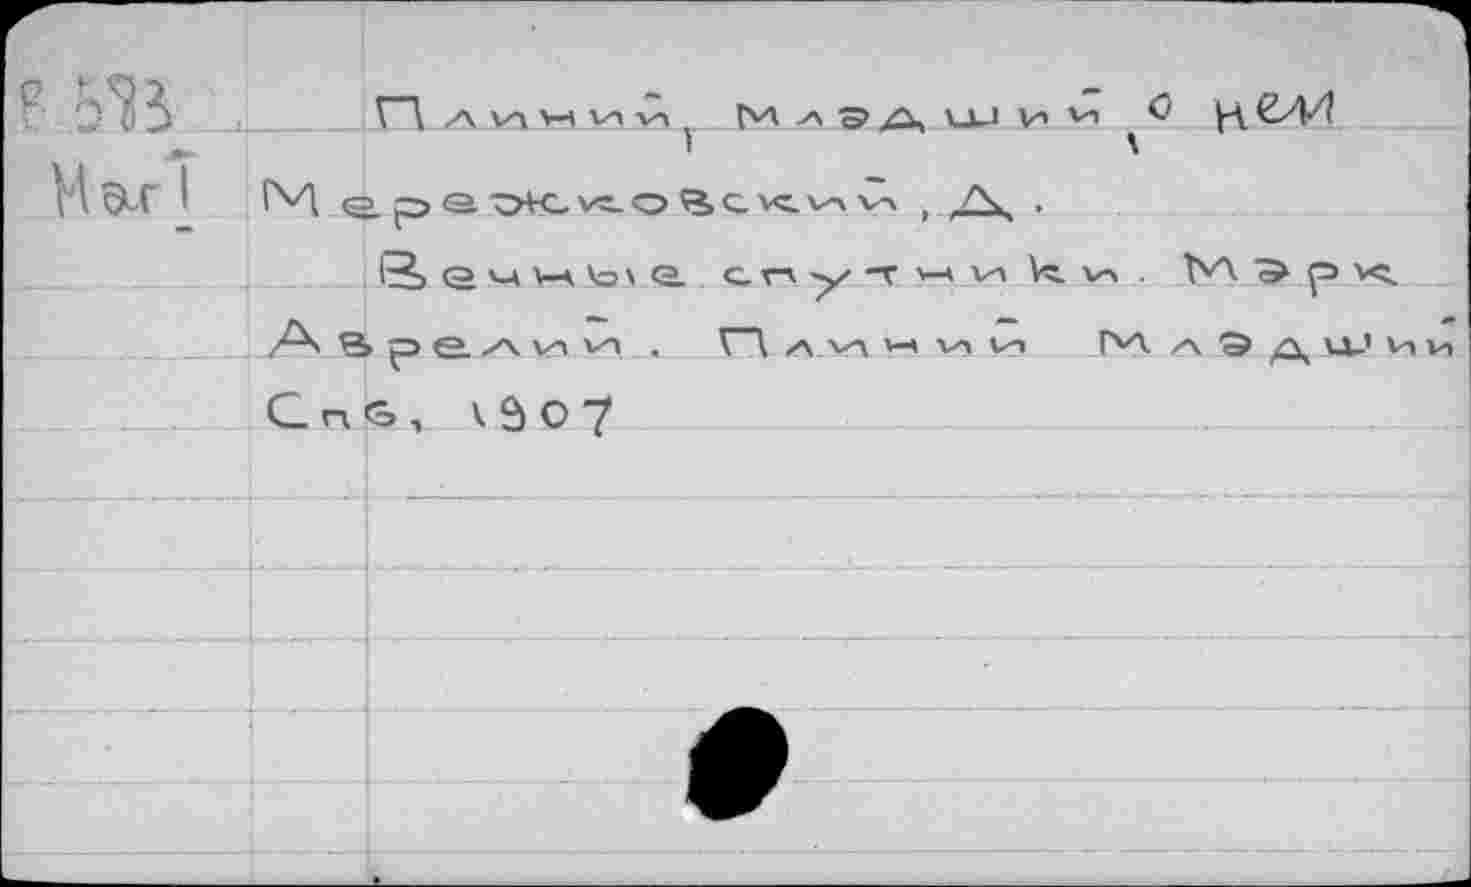 Плиний, Младший, о нем
Мережковский, Д.
Вечные спутники. Марк
Аврелий. Плиний Младший
Спб, 1907